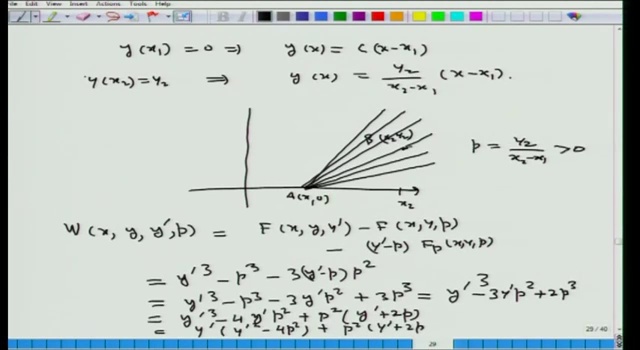 File Edit View Insert Actions Tools Help
y(x₁) = 0 ⇒ y(x) = C(x-x₁)
y(x₂) = y₂ ⇒ y(x) = y₂/(x₂-x₁) (x-x₁).
B(x₂,y₂)
p = y₂/(x₂-x₁) > 0
A(x₁,0)
x₂
W(x, y, y', p) = F(x, y, y') - F(x, y, p)
- (y'-p) Fₚ(x, y, p)
= y'³ - p³ - 3(y'-p)p²
= y'³ - p³ - 3y'p² + 3p³ = y'³ - 3y'p² + 2p³
= y'³ - 4y'p² + p²(y'+2p)
= y'(y'² - 4p²) + p²(y'+2p
29 / 40
29